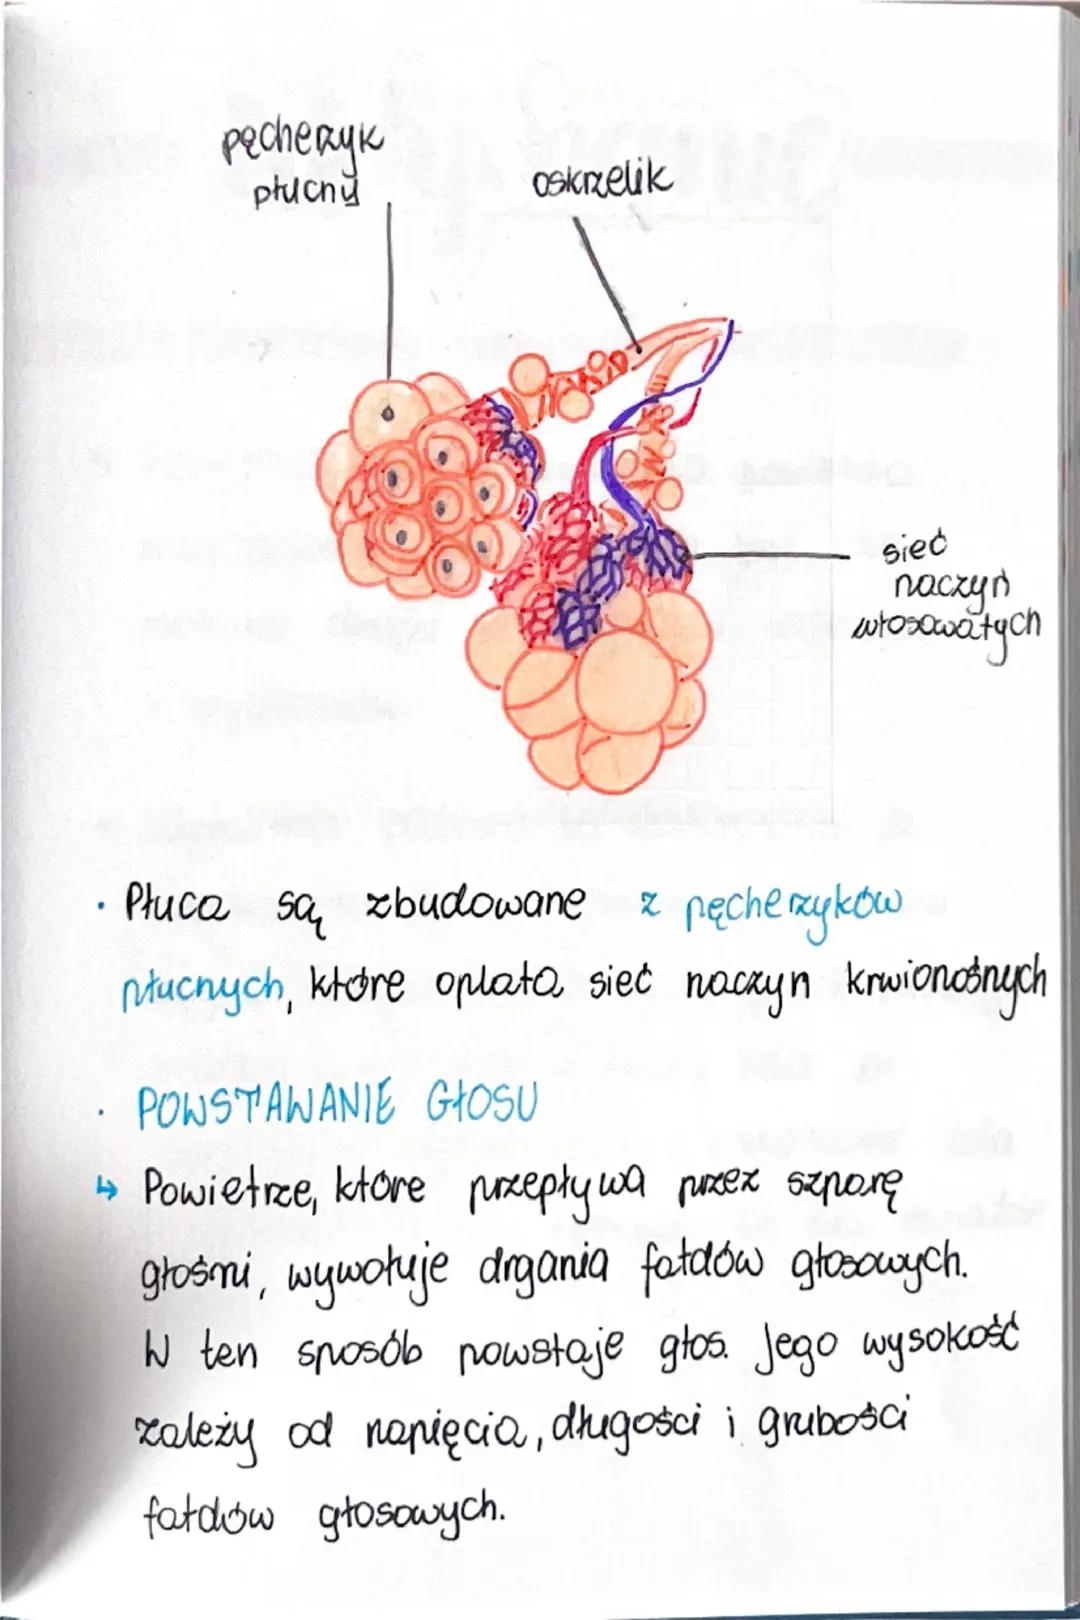 pęcherzyk
płucny
oskrzelik
sieć
naczyń
włosowatych
• Płuca są zbudowane z pęcherzyków
płucnych, które oplata sieć naczyn krwionośnych
• POWSTAWANIE GŁOSU
↳ Powietrze, które przepływa przez szparę
głośni, wywołuje drgania fałdów głosowych.
W ten sposób powstaje głos. Jego wysokość
zależy od napięcia, długości i grubości
fałdów głosowych.